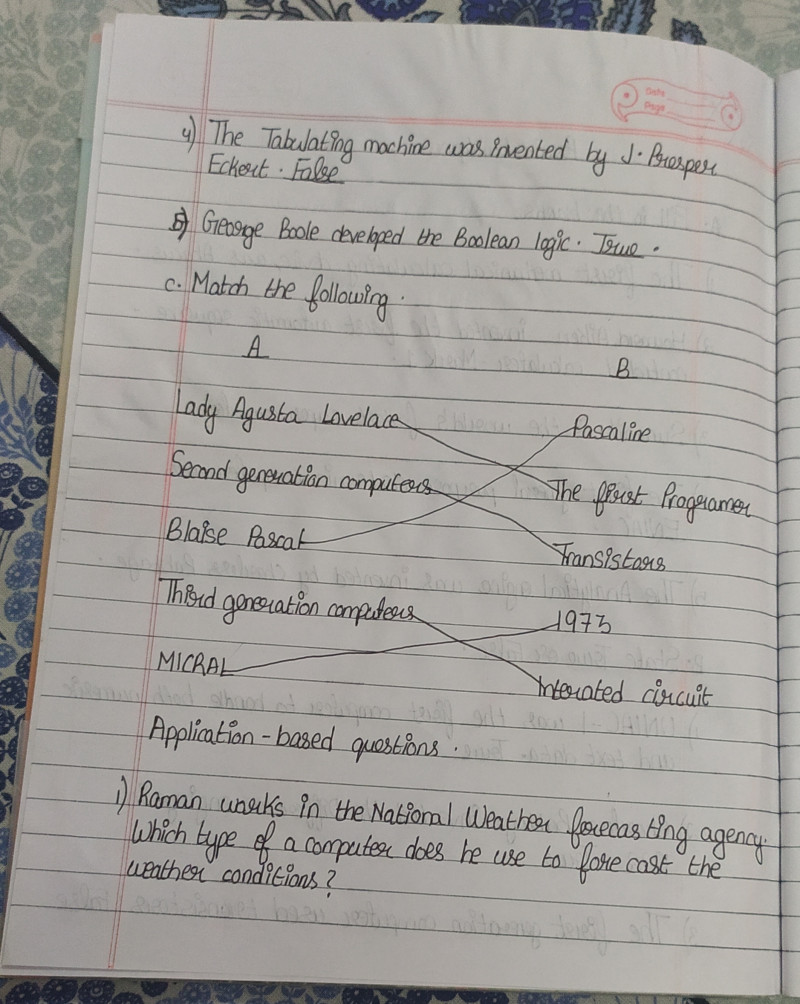 Date
Page
4) The Tabulating machine was invented by J. Prosper
Eckert. False
5) George Boole developed the Boolean logic. True.
C. Match the following.
A
B
Lady Agusta Lovelace
Pascaline
Second generation computers
The first Programer
Blaise Pascal
Transistors
Third generation computers
1973
MICRAL
Interated circuit
Application-based questions.
1) Raman works in the National Weather forecasting agency.
Which type of a computer does he use to forecast the
weather conditions?